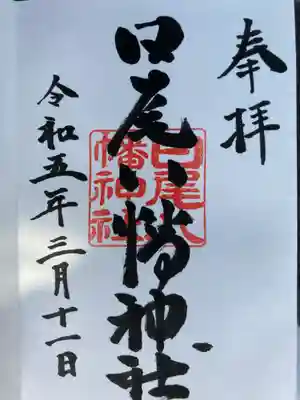 奉拝
日尾八幡神社
日尾八
幡神社
令和五年三月十一日